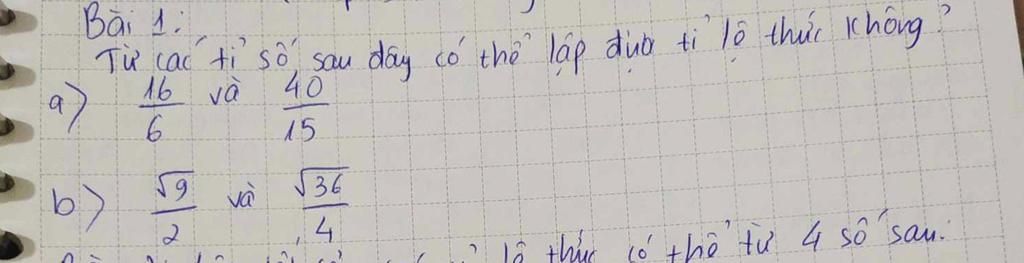 Bài 1:
Từ các tỉ số sau đây có thể lập được tỉ lệ thức không?
a) 16/6 và 40/15
b) √9/2 và √36/4
lệ thức có thể từ 4 số sau: